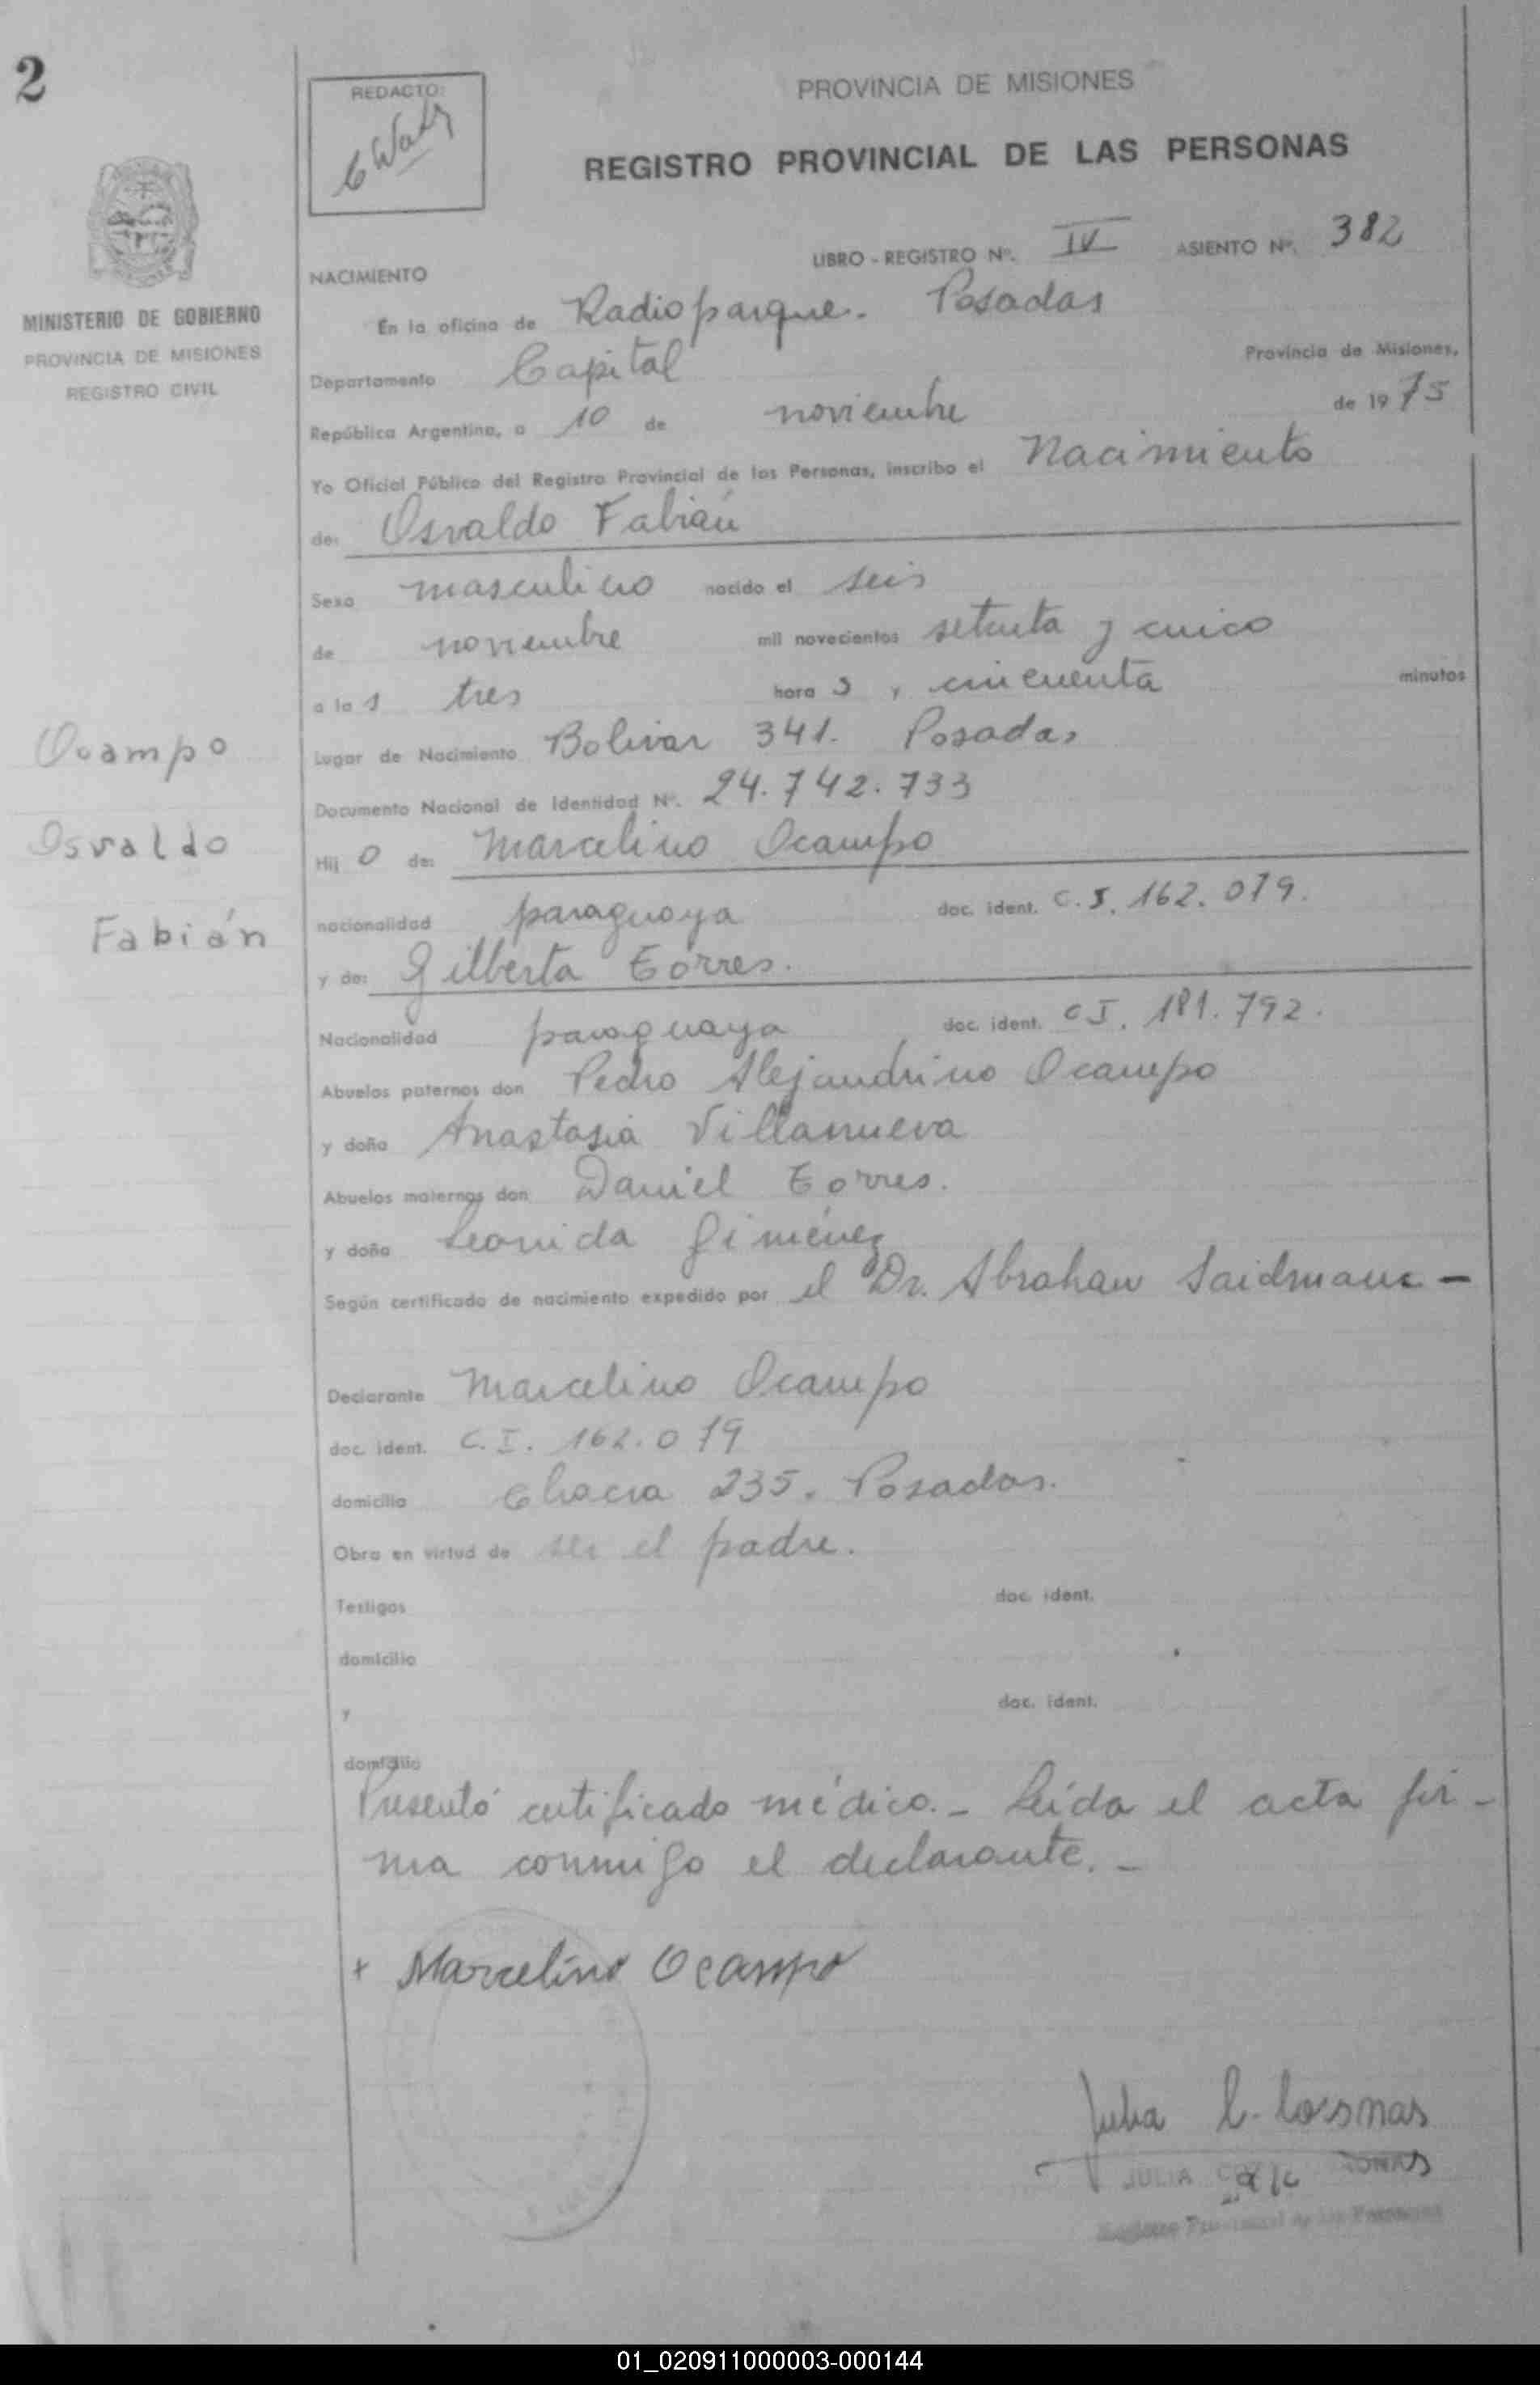 2
REDACTO:
PROVINCIA DE MISIONES
REGISTRO PROVINCIAL DE LAS PERSONAS
MINISTERIO DE GOBIERNO
PROVINCIA DE MISIONES
REGISTRO CIVIL
LIBRO - REGISTRO Nº. IV ASIENTO Nº. 382
NACIMIENTO
En la oficina de Radioparque. Posadas
Departamento Capital Provincia de Misiones,
República Argentina, a 10 de noviembre de 1975
Yo Oficial Público del Registro Provincial de las Personas, inscribo el Nacimiento
de: Osvaldo Fabián
Sexo masculino nacido el seis
de noviembre mil novecientos setenta y cinco
a las tres hora s y cincuenta minutos
Lugar de Nacimiento Bolivar 341. Posadas
Documento Nacional de Identidad Nº. 24.742.733
Ocampo
Osvaldo
Fabián
Hij o de: Marcelino Ocampo
nacionalidad paraguaya doc. ident. C.I. 162.079.
y de: Gilberta Torres.
Nacionalidad paraguaya doc. ident. CI. 181.792.
Abuelos paternos don Pedro Alejandrino Ocampo
y doña Anastasia Villanueva
Abuelos maternos don Daniel Torres.
y doña Leonida Giménez
Según certificado de nacimiento expedido por el Dr. Abraham Saidmann -
Declarante Marcelino Ocampo
doc. ident. C.I. 162.079
domicilio Chacra 235. Posadas.
Obra en virtud de ser el padre.
Testigos doc. ident.
domicilio
y doc. ident.
domicilio
Presentó certificado médico. - Leída el acta fir-
ma conmigo el declarante. -
+ Marcelino Ocampo
Julia C.
JULIA
Registro Provincial de las Personas
01_020911000003-000144